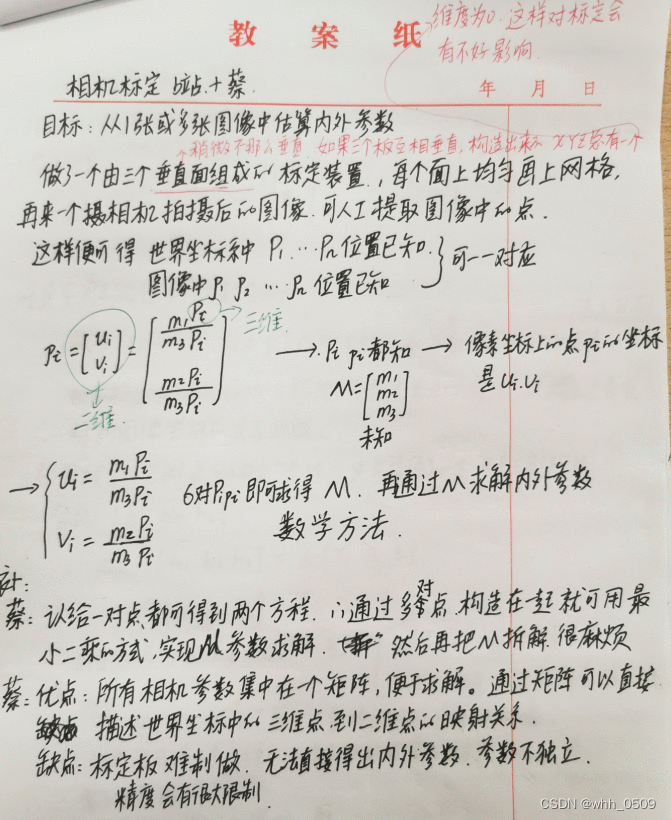 维度为0.这样对标定会
有不好影响.
教案纸
相机标定 b站+蔡.
年 月 日
目标:从1张或多张图像中估算内外参数
稍微不那么垂直 如果三个板互相垂直,构造出来的XYZ总有一个
做了一个由三个垂直面组成的标定装置,每个面上均匀画上网格,
再来一个摄相机拍摄后的图像.可人工提取图像中的点.
这样便可得 世界坐标系中 P1 ... Pn 位置已知.
图像中 p1 p2 ... pn 位置已知
可一一对应
三维.
pi = [ui vi] = [m1Pi/m3Pi m2Pi/m3Pi] → Pi pi都知 → 像素坐标上的点pi的坐标
M = [m1 m2 m3] 是ui.vi
二维. 未知
→ { ui = m1Pi/m3Pi
6对Pipi即可求得 M. 再通过M求解内外参数
vi = m2Pi/m3Pi
数学方法.
补:
蔡:认给一对点,都可得到两个方程. ∴通过多对点,构造在一起就可用最
小二乘的方式,实现M参数求解. 然后再把M拆解.很麻烦
蔡:优点:所有相机参数集中在一个矩阵,便于求解。通过矩阵可以直接
描述世界坐标中的三维点到二维点的映射关系.
缺点:标定板难制做.无法直接得出内外参数.参数不独立.
精度会有很大限制.
CSDN @whh_0509